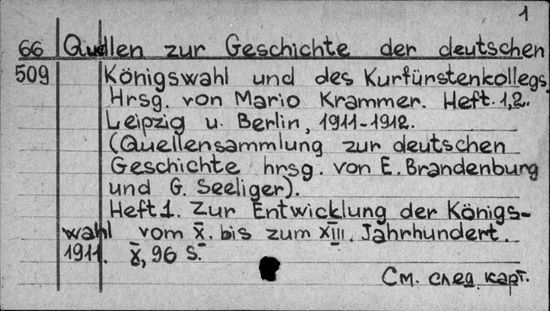 1
66 Quellen zur Geschichte der deutschen
509 Königswahl und des Kurfürstenkollegs.
Hrsg. von Mario Krammer. Heft. 1,2.
Leipzig u. Berlin, 1911-1912.
(Quellensammlung zur deutschen
Geschichte hrsg. von E. Brandenburg
und G. Seeliger).
Heft 1. Zur Entwicklung der Königs-
wahl vom X. bis zum XIII. Jahrhundert.
1911. X, 96 S.
См. след. карт.